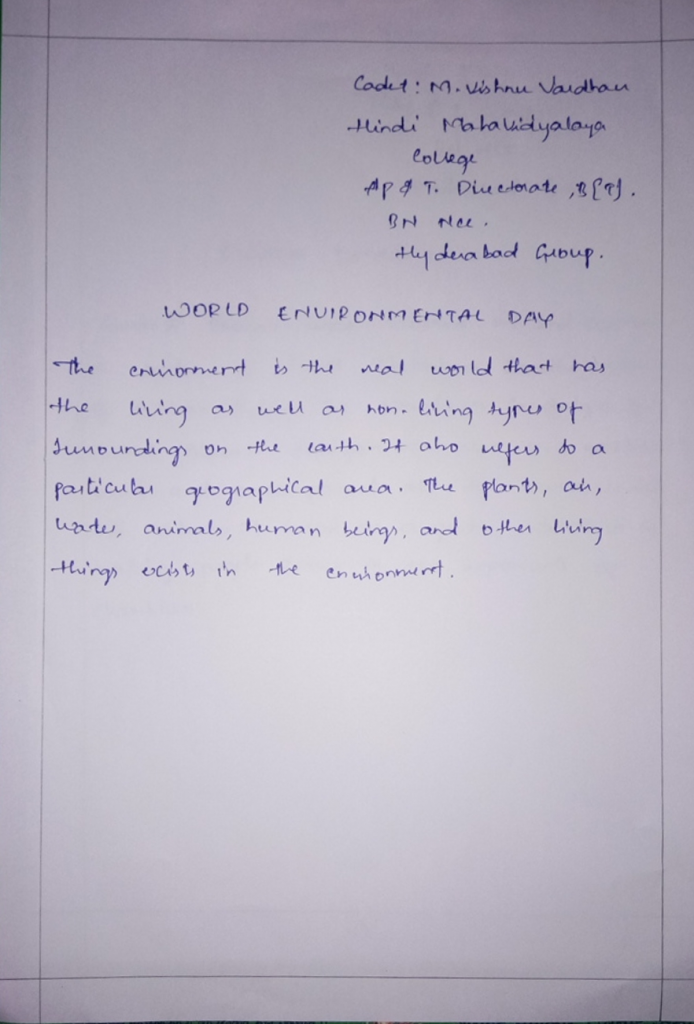 Cadet: M. Vishnu Vardhan
Hindi Mahavidyalaya
College
AP & T. Directorate,
BN Ncc.
Hyderabad Group.
WORLD ENVIRONMENTAL DAY
The environment is the real world that has
the living as well as non-living types of
surroundings on the earth. It also refers to a
particular geographical area. The plants, air,
water, animals, human beings, and other living
things exists in the environment.